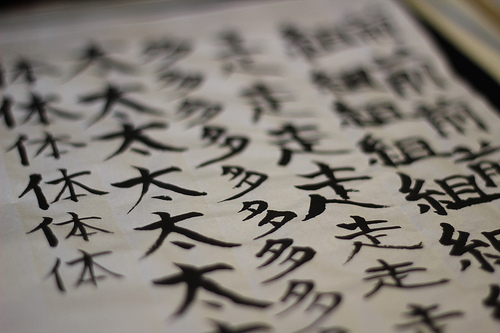 前前前前
組組組組組組
走走走走走走走
多多多多多多多多
太太太太太太
体体体体体体